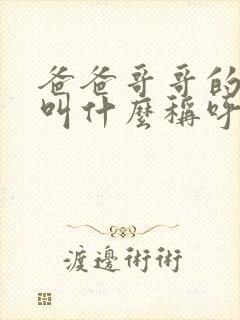 爸爸哥哥的
叫什麼稱呼
渡邊術術